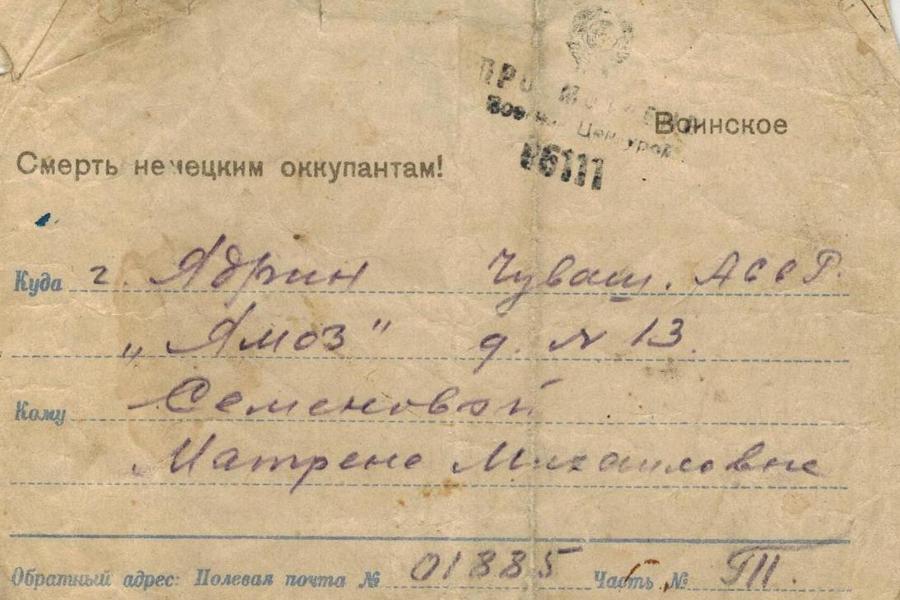 Просмотрено
Военной Цензурой
06111
Воинское
Смерть немецким оккупантам!
Куда г. Ядрин Чуваш. АССР.
„Ямоз" д. N 13.
Кому Семеновой
Матрене Михайловне
Обратный адрес: Полевая почта № 01885 Часть № ТП.